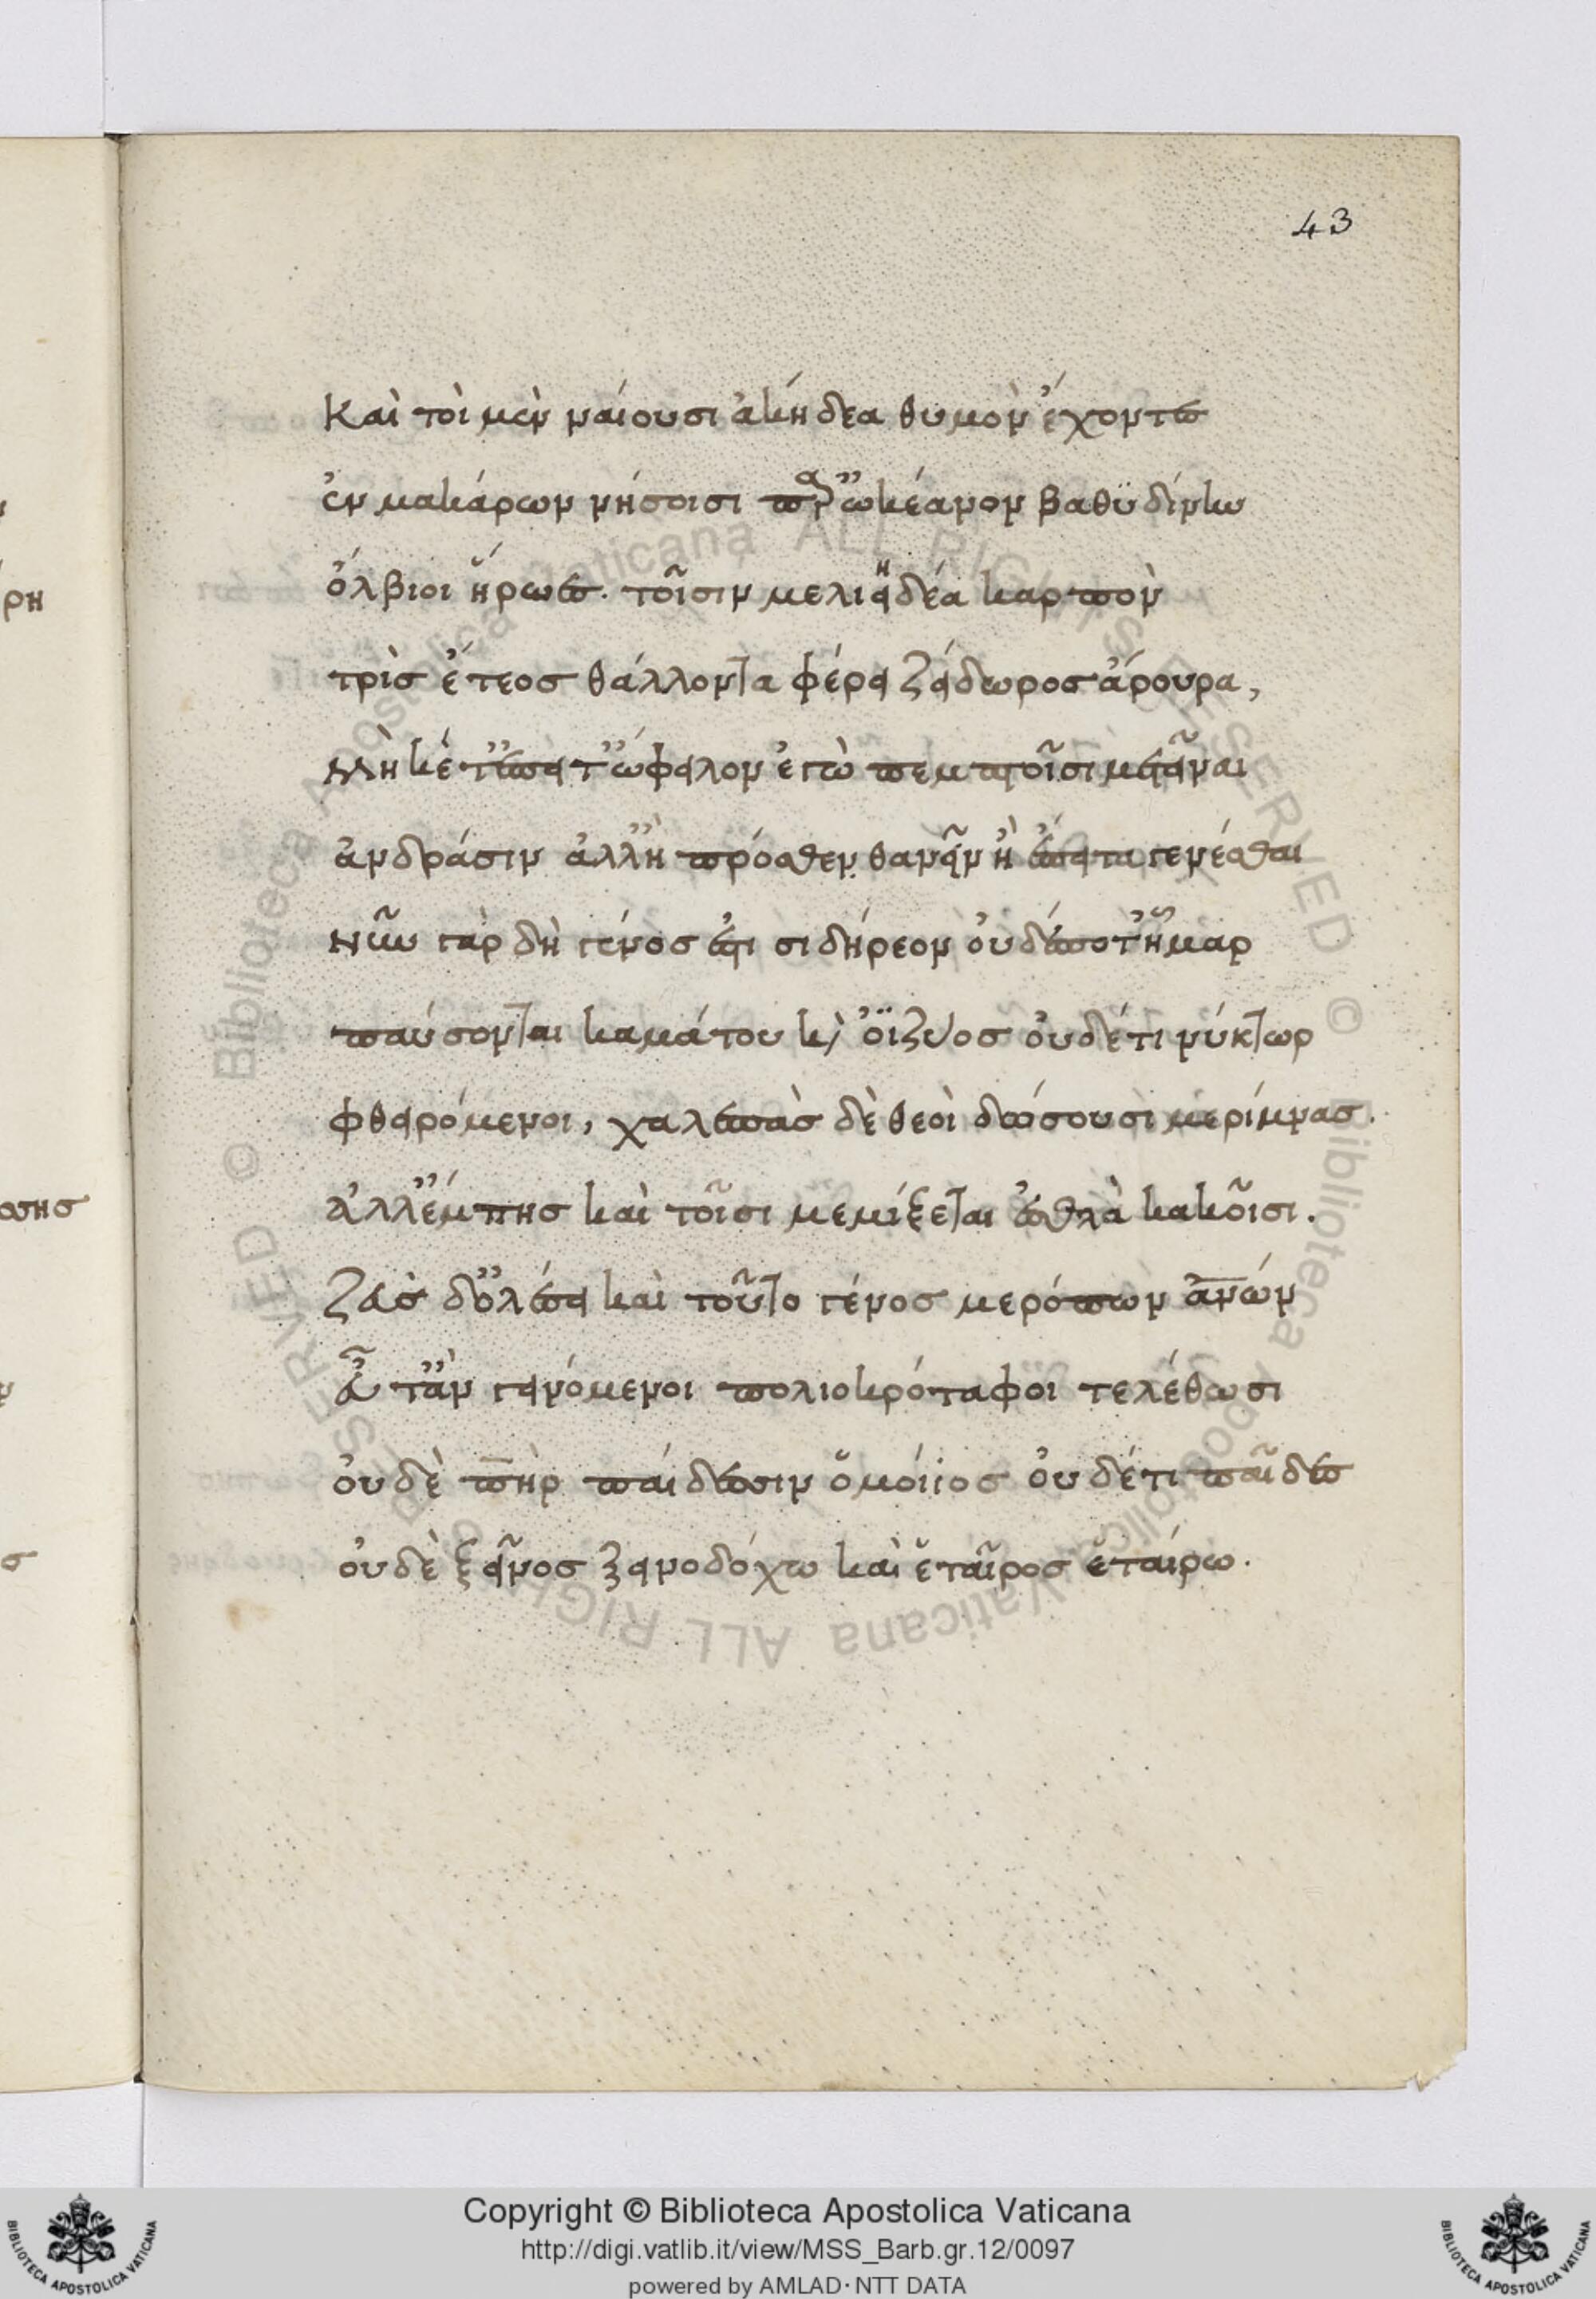 43
Καὶ τοὶ μὲν ναίουσι ἀκήδεα θυμὸν ἔχοντες
ἐν μακάρων νήσοισι παρ' ὠκέανον βαθϋδίνην
ὄλβιοι ἥρωες. τοῖσιν μελιηδέα καρπὸν
τρὶς ἔτεος θάλλοντα φέρει ζείδωρος ἄρουρα,
Μὴ κέτ' ἔπειτ' ὤφειλον ἐγὼ πέμπτοισι μετεῖναι
ἀνδράσιν ἀλλ' ἢ πρόσθεν θανεῖν ἢ ἔπειτα γενέσθαι
Νῦν γὰρ δὴ γένος ἐστι σιδήρεον οὐδέποτ' ἦμαρ
παύσονται καμάτου κ) ὀϊζυος οὐδέτι νύκτωρ
φθειρόμενοι, χαλεπὰς δὲ θεοὶ δώσουσι μερίμνας.
ἀλλ' ἔμπης καὶ τοῖσι μεμίξεται ἐσθλὰ κακοῖσι.
Ζεὺς δ' ὀλέσει καὶ τοῦτο γένος μερόπων ἀνών
Εὖτ' ἂν γεινόμενοι πολιοκρόταφοι τελέθωσι
οὐδὲ πηρ παίδεσσιν ὁμοίιος οὐδέτι παῖδες
οὐδὲ ξεῖνος ξεινοδόχω καὶ ἑταῖρος ἑταίρω.
ρη
σης
Copyright © Biblioteca Apostolica Vaticana
http://digi.vatlib.it/view/MSS_Barb.gr.12/0097
powered by AMLAD·NTT DATA